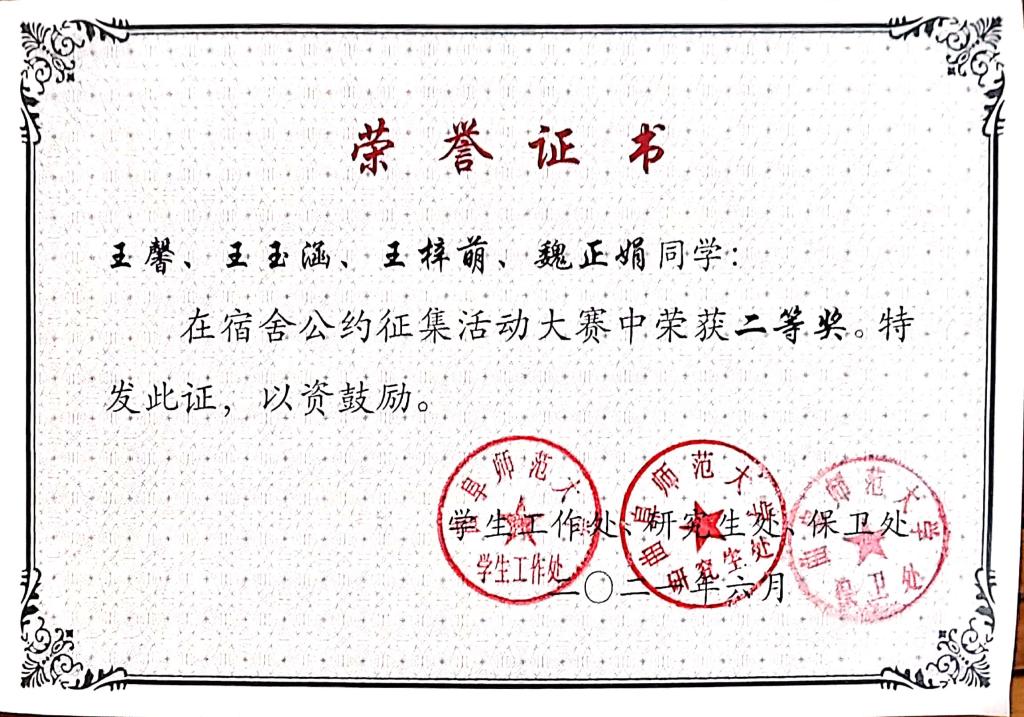 荣誉证书
王馨、王玉涵、王梓萌、魏正娟同学：
在宿舍公约征集活动大赛中荣获二等奖。特
发此证，以资鼓励。
学生工作处、研究生处、保卫处
二〇二一年六月
曲阜师范大学
学生工作处
曲阜师范大学
研究生处
曲阜师范大学
保卫处